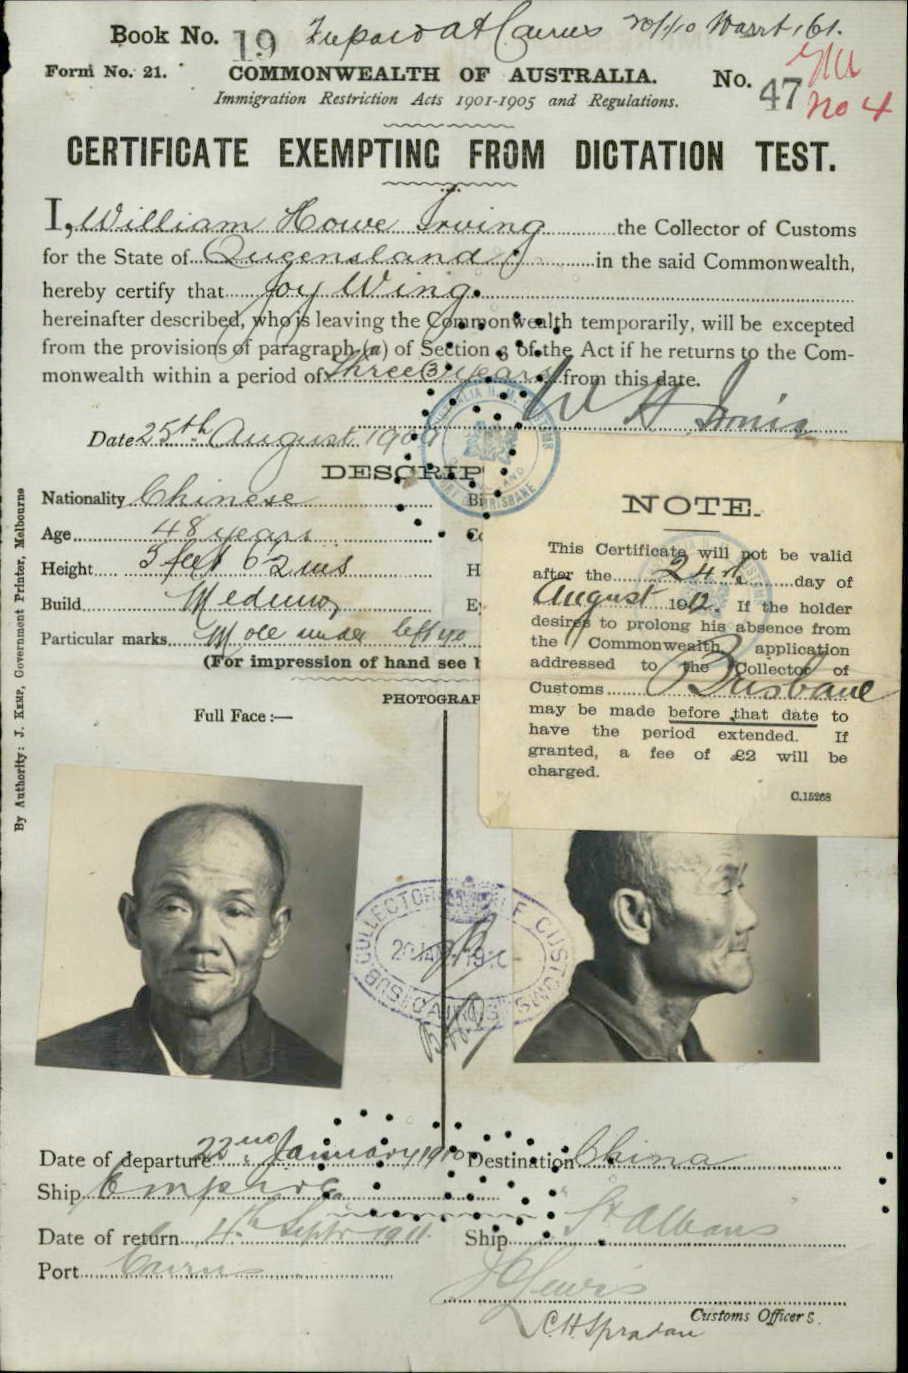 Book No. 19 at Cairns 20/1/10 Warrt 161.
Form No. 21. COMMONWEALTH OF AUSTRALIA. No. 47 No 4
Immigration Restriction Acts 1901-1905 and Regulations.
CERTIFICATE EXEMPTING FROM DICTATION TEST.
I, William Howe Irving the Collector of Customs
for the State of Queensland in the said Commonwealth,
hereby certify that Joy Wing
hereinafter described, who is leaving the Commonwealth temporarily, will be excepted
from the provisions of paragraph (a) of Section 3 of the Act if he returns to the Com-
monwealth within a period of three (3) years from this date.
W H Irving
Date 25th August 1909
DESCRIP
Nationality Chinese Bi
Age 48 years Co
Height 5 feet 6 2 ins H
Build Medium E
Particular marks Mole under left eye
(For impression of hand see b
PHOTOGRAP
Full Face:—
NOTE.
This Certificate will not be valid
after the 24th day of
August 1912. If the holder
desires to prolong his absence from
the Commonwealth, application
addressed to the Collector of
Customs Brisbane
may be made before that date to
have the period extended. If
granted, a fee of £2 will be
charged.
C.15268
By Authority: J. KEMP, Government Printer, Melbourne
BRISBANE
SUB COLLECTOR OF CUSTOMS
20 JAN 1910
CAIRNS
Date of departure 22nd January 1910 Destination China
Ship Empire
Date of return 4th Septr 1911 Ship St Albans
Port Cairns
J Lewis
Customs Officers.
C H Spradau